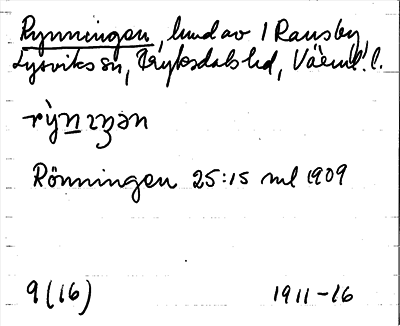 Rynningen, lund av 1 Ransby,
Lysviks sn, Fryksdals hd, Värml. l.
rỳnɪŋən
Rönningen 25:15 ml 1909
9(16) 1911-16